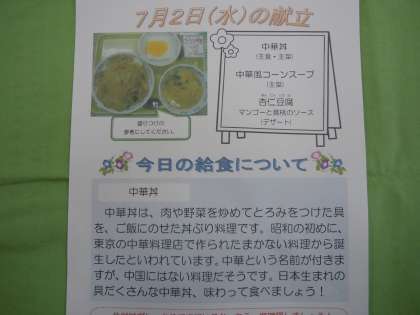 7月2日(水)の献立
中華丼
(主食・主菜)
中華風コーンスープ
杏仁豆腐
マンゴーと黄桃のソース
(デザート)
盛りつけの
参考にしてください。
今日の給食について
中華丼
中華丼は、肉や野菜を炒めてとろみをつけた具
を、ご飯にのせた丼ぶり料理です。昭和の初めに、
東京の中華料理店で作られたまかない料理から誕
生したといわれています。中華という名前が付きます
が、中国にはない料理だそうです。日本生まれの
具だくさんな中華丼、味わって食べましょう!